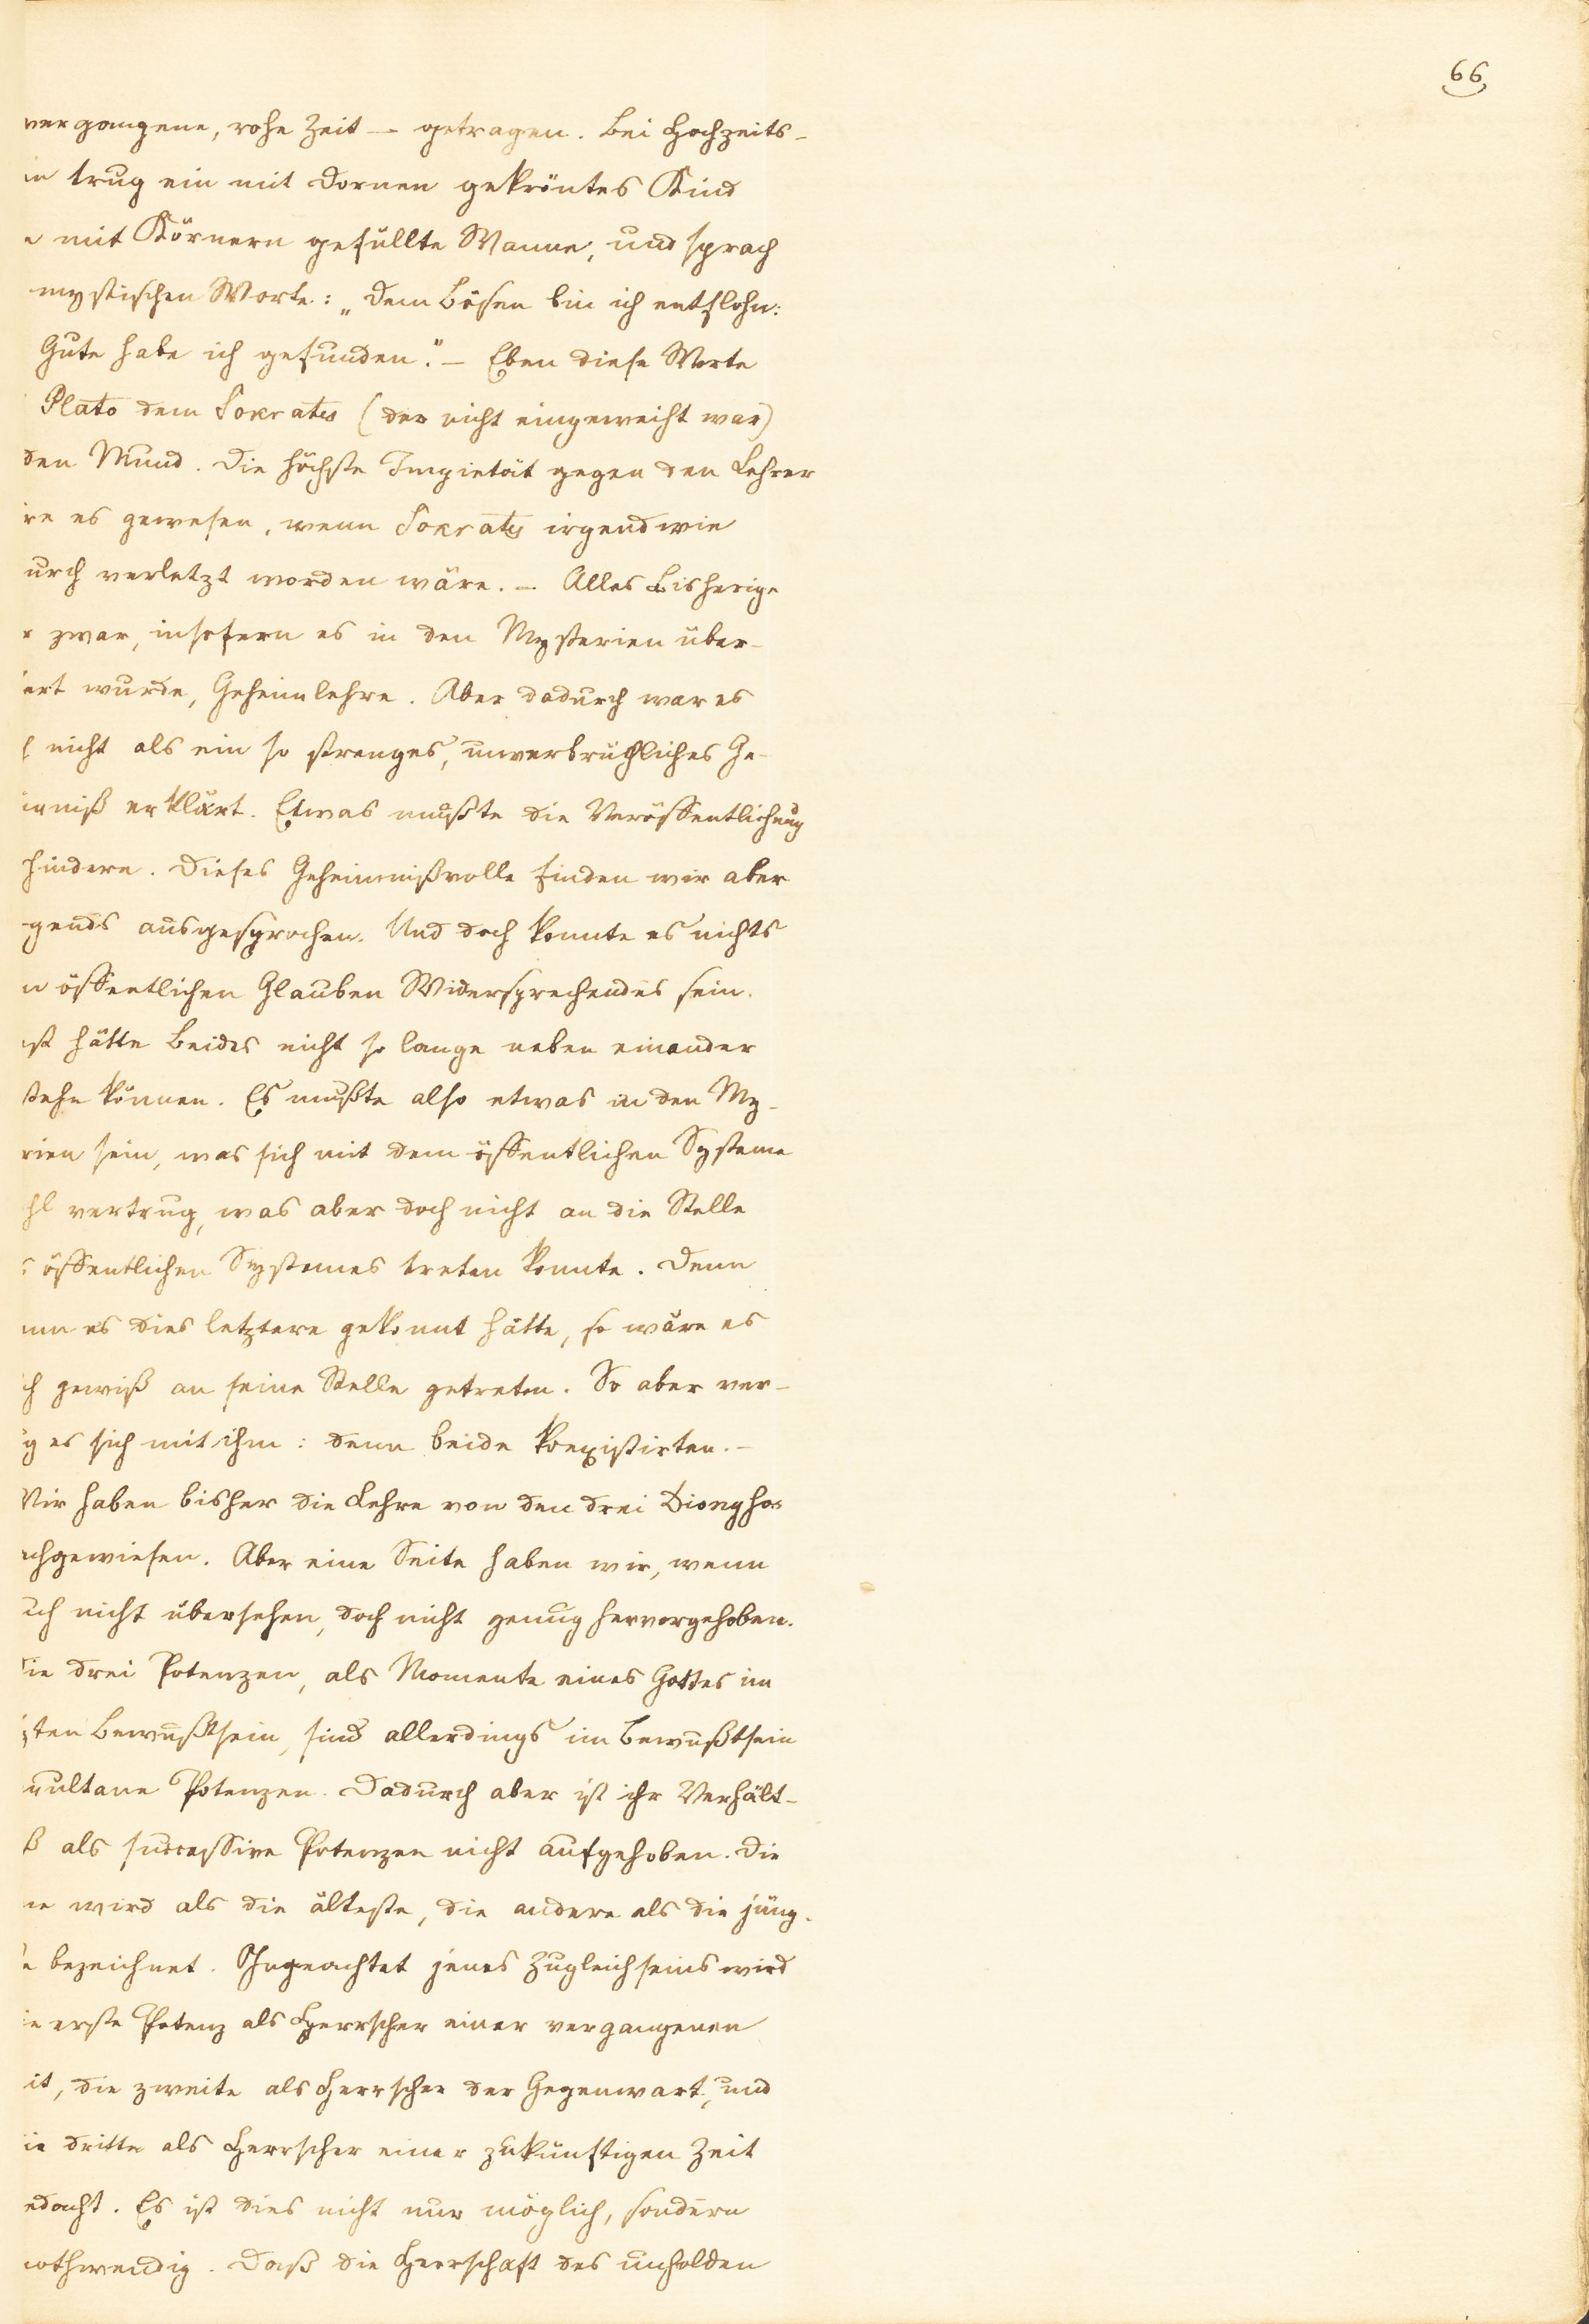 66
vergangene, rohe Zeit — getragen. Bei Hochzeits-
n trug ein mit Dornen gekröntes Kind
e mit Körnern gefüllte Wanne, und sprach
mystischen Worte: „Dem Bösen bin ich entflohn:
Gute habe ich gefunden." — Eben diese Worte
Plato dem Sokrates (der nicht eingeweiht war)
den Mund. Die höchste Impietät gegen den Lehrer
re es gewesen, wenn Sokrates irgendwie
urch verletzt worden wäre. — Alles Bisherige
r zwar, insofern es in den Mysterien über-
ert wurde, Geheimlehre. Aber dadurch war es
h nicht als ein so strenges, unverbrüchliches Ge-
imniß erklärt. Etwas mußte die Veröffentlichung
hindern. Dieses Geheimnißvolle finden wir aber
gends ausgesprochen. Und doch konnte es nichts
n öffentlichen Glauben Widersprechendes sein.
st hätte Beides nicht so lange neben einander
stehn können. Es mußte also etwas in den My-
rien sein, was sich mit dem öffentlichen Systeme
hl vertrug, was aber doch nicht an die Stelle
s öffentlichen Systemes treten konnte. Denn
nn es dies letztere gekonnt hätte, so wäre es
ch gewiß an seine Stelle getreten. So aber ver-
g es sich mit ihm: denn beide koexistirten. —
Wir haben bisher die Lehre von den drei Dionysos
chgewiesen. Aber eine Seite haben wir, wenn
uch nicht übersehen, doch nicht genug hervorgehoben.
Die drei Potenzen, als Momente eines Gottes im
zten Bewußtsein, sind allerdings im Bewußtsein
multane Potenzen. Dadurch aber ist ihr Verhält-
ß als successive Potenzen nicht aufgehoben. Die
ne wird als die älteste, die andere als die jüng-
e bezeichnet. Ohngeachtet jenes Zugleichseins wird
ie erste Potenz als Herrscher einer vergangenen
it, die zweite als Herrscher der Gegenwart, und
ie dritte als Herrscher einer zukünftigen Zeit
edacht. Es ist dies nicht nur möglich, sondern
nothwendig. Daß die Herrschaft des unholden